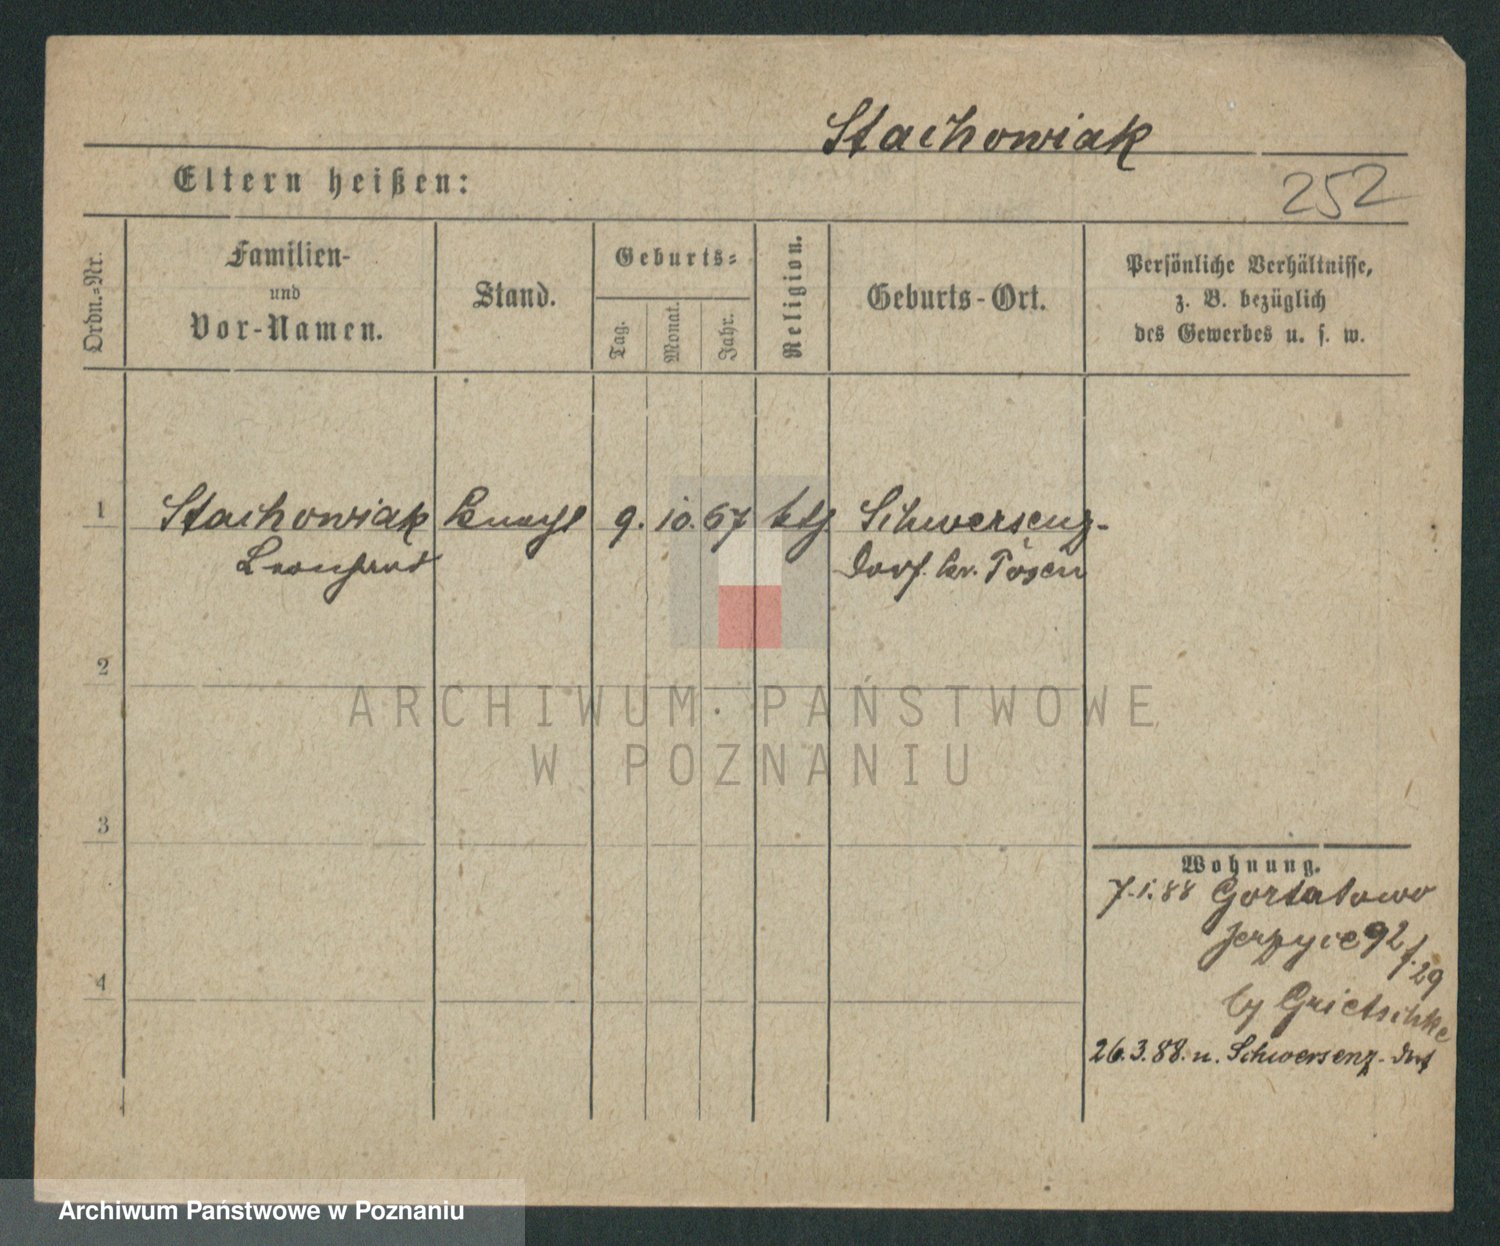 Stachowiak
Eltern heißen:
252
Ordn.-Nr.
Familien-
und
Vor-Namen.
Stand.
Geburts-
Tag.
Monat.
Jahr.
Religion.
Geburts-Ort.
Persönliche Verhältnisse,
z. B. bezüglich
des Gewerbes u. s. w.
1 Stachowiak Knecht 9. 10. 67 kth Schwersenz-
Leonhard Dorf. Kr. Posen
2
ARCHIWUM PAŃSTWOWE
W POZNANIU
3
Wohnung.
7.1.88 Gortatowo
Jerzyce 92
f. 29
4
by Grietschke
26.3.88. n. Schwersenz-Dorf
Archiwum Państwowe w Poznaniu